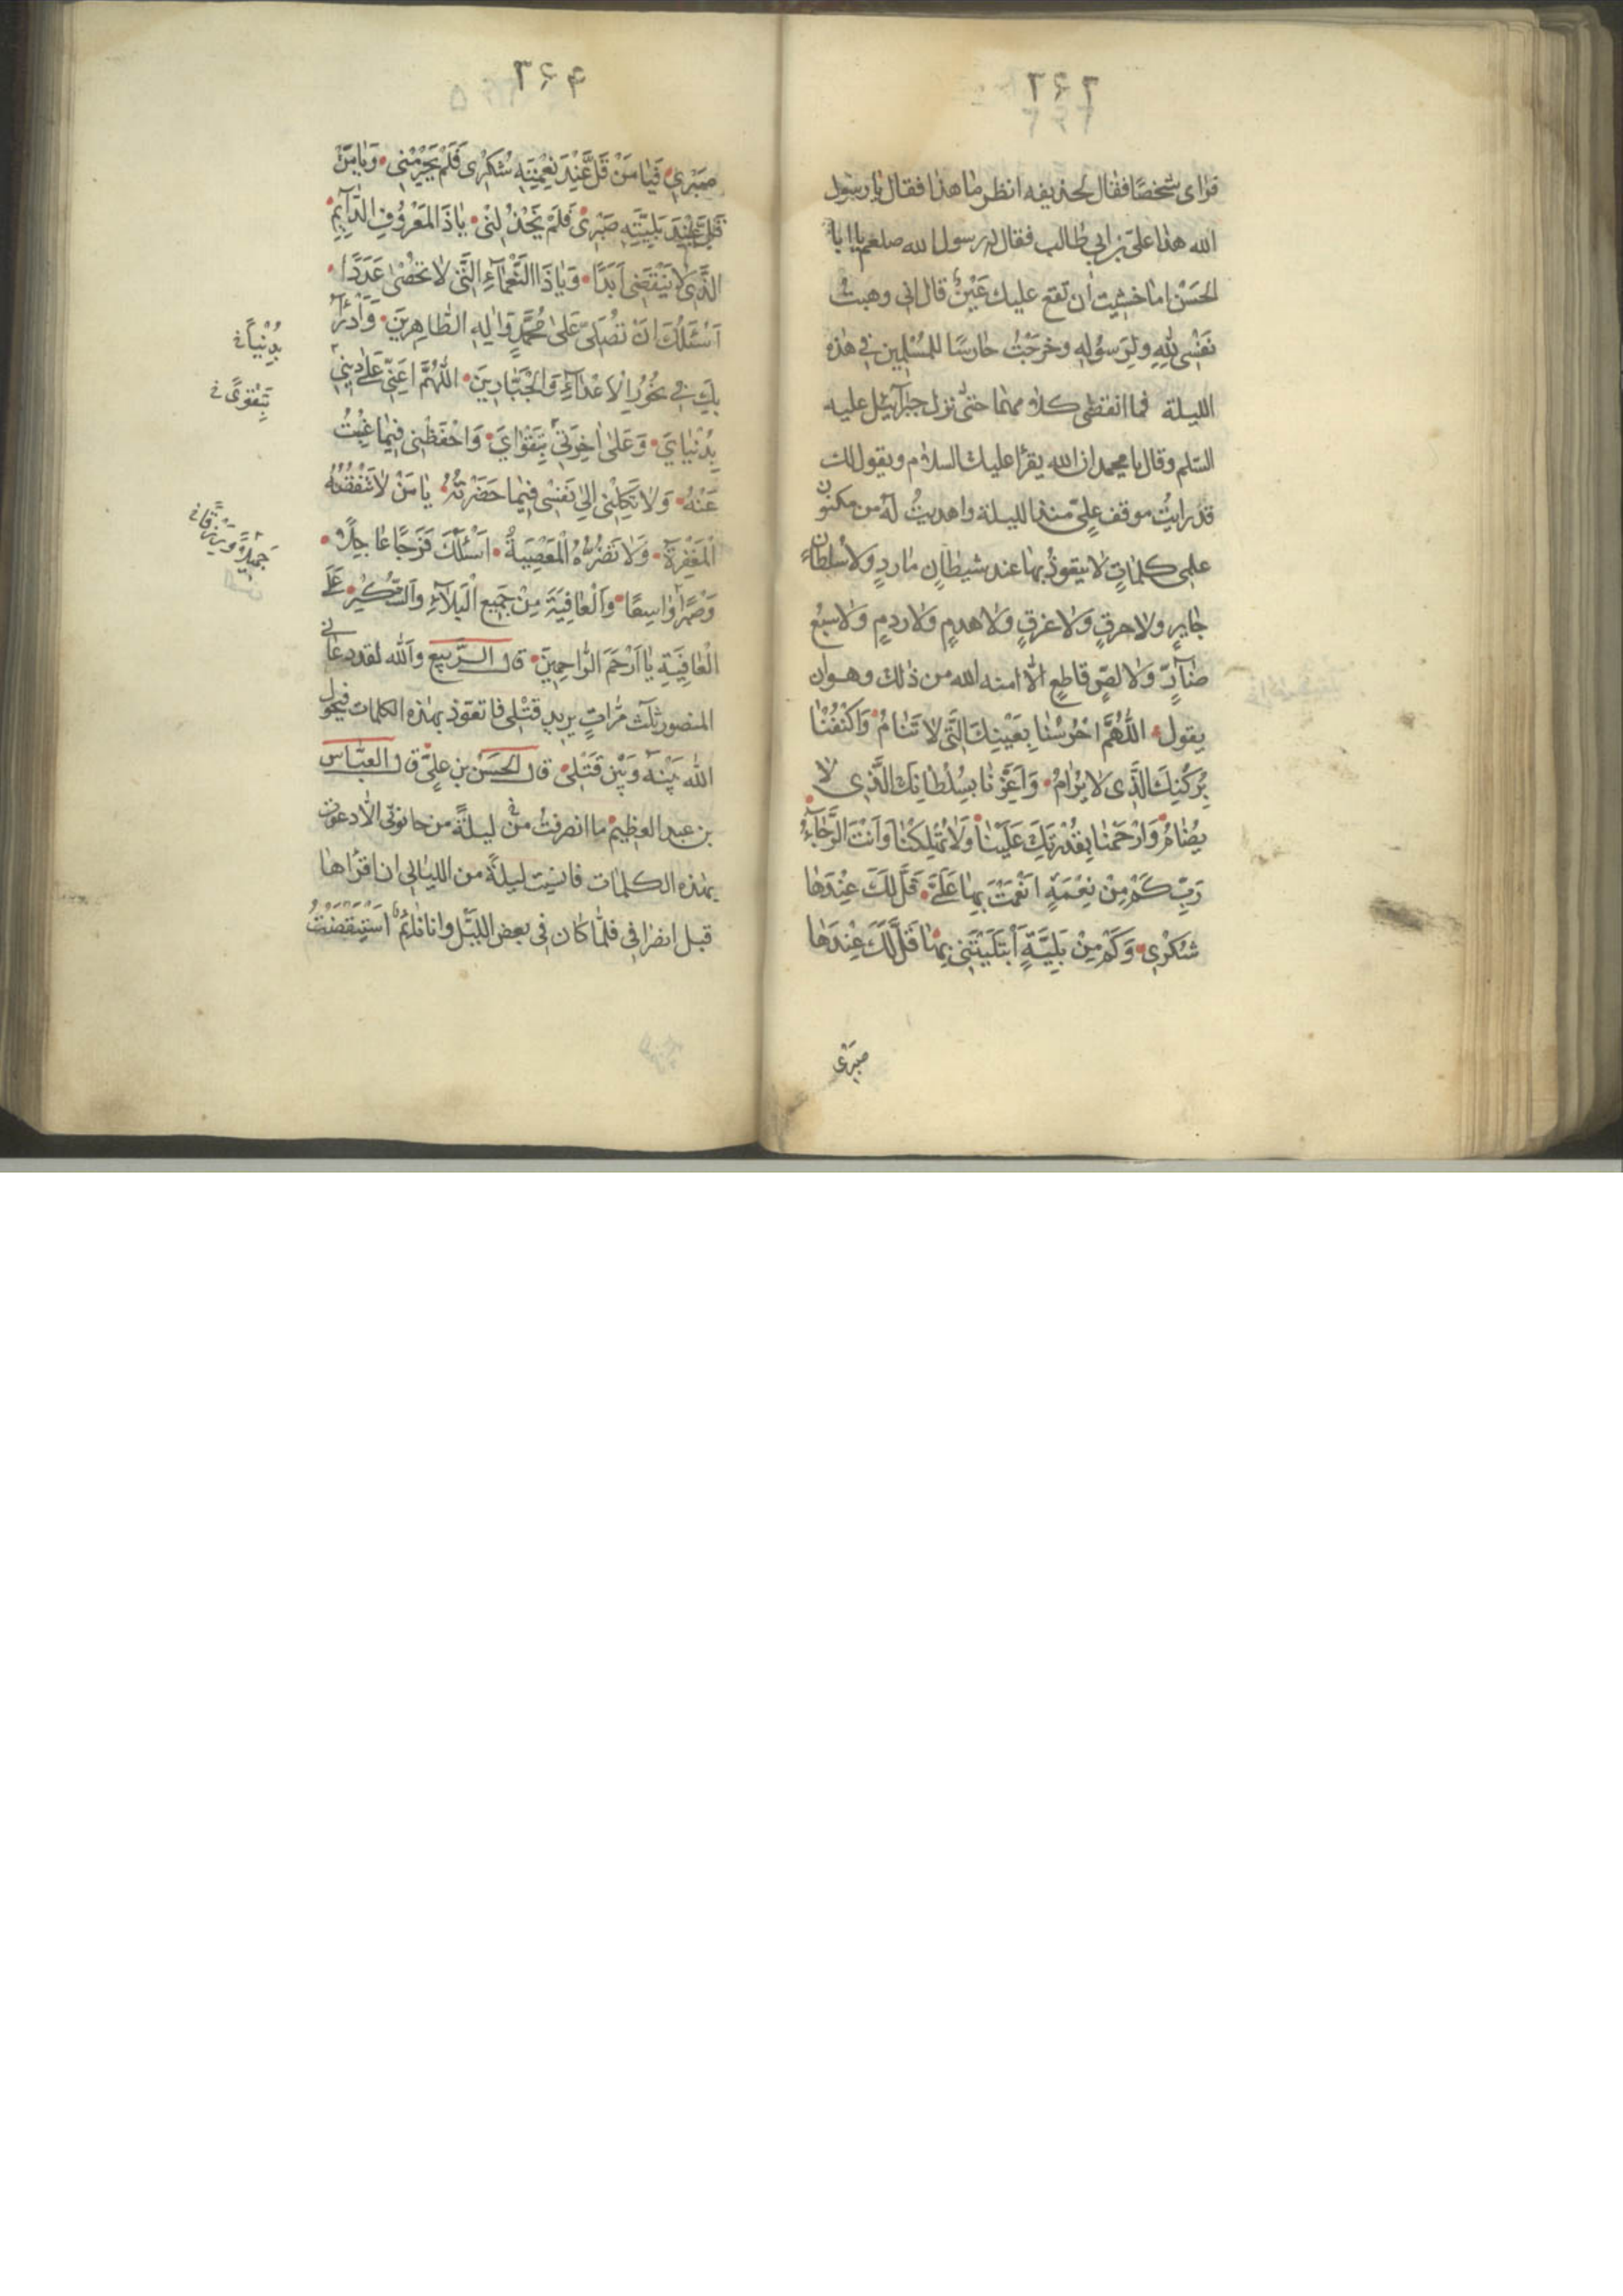 ٢٦٢
فرای شخصًا فقال لحذیفه انظر ما هذا فقال یا رسول
الله هذا علیّ بن ابی طالب فقال له رسول الله صلعم یا ابا
الحَسَن اما خشیت اَن تقع علیك عَیْنٌ قال انی وهبتُ
نَفْسی للهِ ولِرَسُولِهِ وخرجْتُ حارسًا للمُسْلِمِین فی هذه
اللیلة فما انقضی كلامهما حتّی نزل جبرآئیل علیه
السّلم وقال یا محمد ان الله یقرأ علیك السلام ویقول لك
قد رایتُ موقف علِیٍّ منذ اللیلة واهدیتُ لَهُ من مكنون
علمی كلماتٍ لا یتعوذُ بها عند شیطانٍ ماردٍ ولا سُلطان
جایرٍ ولا حرقٍ ولا غرقٍ ولا هدمٍ ولا ردمٍ ولا سبُعٍ
ضآرٍّ ولا لصٍّ قاطعٍ الّا امنه الله من ذلك وهو ان
یقول اَللّهُمَّ احْرُسْنا بِعَیْنِكَ الَّتی لا تَنامُ وَاكْنُفْنا
بِرُكْنِكَ الَّذی لا یُرامُ وَاَعِزَّنا بِسُلْطانِكَ الَّذی لا
یُضامُ وَارْحَمْنا بِقُدْرَتِكَ عَلَیْنا وَلا تُهْلِكْنا وَاَنْتَ الرَّجآءُ
رَبِّ كَمْ مِنْ نِعْمَةٍ اَنْعَمْتَ بِها عَلَیَّ قَلَّ لَكَ عِنْدَها
شُكْری وَكَمْ مِنْ بَلِیَّةٍ اَبْتَلَیْتَنی بِها قَلَّ لَكَ عِنْدَها
صَبْری
٣٦٣
صَبْری فَیا مَنْ قَلَّ عِنْدَ نِعْمَتِهِ شُكْری فَلَمْ یَحْرِمْنی وَیا مَنْ
قَلَّ عِنْدَ بَلِیَّتِهِ صَبْری فَلَمْ یَخْذُلْنی یا ذَا المَعْرُوفِ الدّآیِمِ
الَّذی لا یَنْقَضی اَبَدًا وَیا ذَا النَّعْمآءِ الَّتی لا تُحْصی عَدَدًا
اَسْئَلُكَ اَنْ تُصَلِّیَ عَلی مُحَمَّدٍ وَالِهِ الطّاهِرینَ وَاَدْرَأُ
بِكَ فی نُحُورِ الْاَعْدآءِ وَالْجَبّارینَ اللّهُمَّ اَعِنّی عَلی دینی
بِدُنْیایَ وَعَلی اخِرَتی بِتَقْوایَ وَاحْفَظْنی فیما غِبْتُ
عَنْهُ وَلا تَكِلْنی اِلی نَفْسی فیما حَضَرْتُهُ یا مَنْ لا تَنْقُصُهُ
الْمَغْفِرَةُ وَلا تَضُرُّهُ الْمَعْصِیَةُ اَسْئَلُكَ فَرَجًا عاجِلًا
وَصَبْرًا واسِعًا وَالْعافِیَةَ مِنْ جَمیعِ الْبَلآءِ وَالشُّكْرَ عَلَی
الْعافِیَةِ یا اَرْحَمَ الرّاحِمینَ قال الرَّبیع والله لقد دعانی
المنصور ثلٰث مرّاتٍ یرید قَتْلی فاتعوّذ بهذه الكلمات فیحول
الله بَیْنَه وَبَیْن قَتْلی قال الحَسَن بن علِیٍّ قال العبّاس
بن عبد العظیم ما انصرفتُ من لیلةً من حانوتی الّا دعوت
بهذه الكلمات فانسیت لیلةً من اللیالی ان اقرأها
قبل انصرافی فلمّا كان فی بعض اللیل وانا نائمٌ استیقضتُ
بِدُنْیاً
بِتَقْویً
جَمیلًا وَرِزْقًا